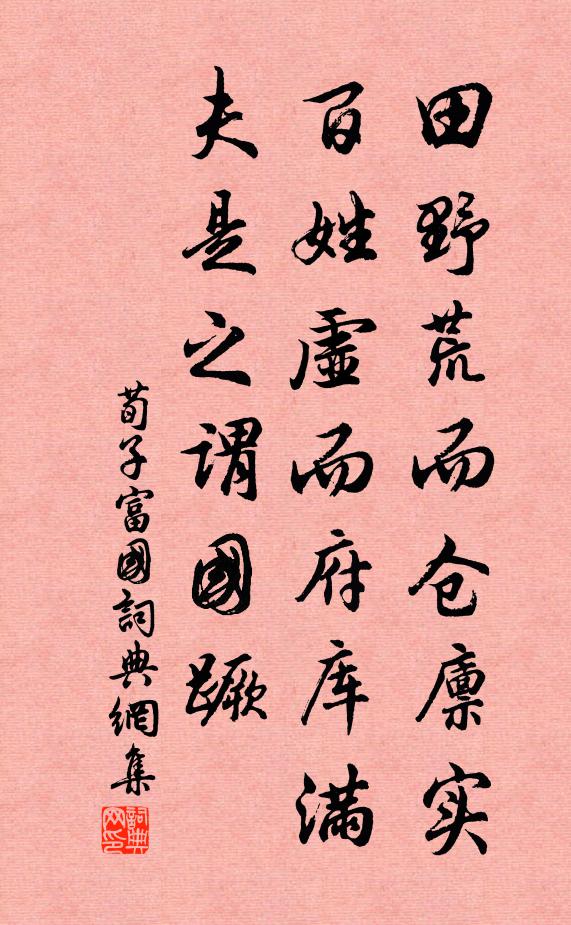 田野荒而仓廪实
百姓虚而府库满
夫是之谓國蹶
荀子富國詞典網集
詞典网印